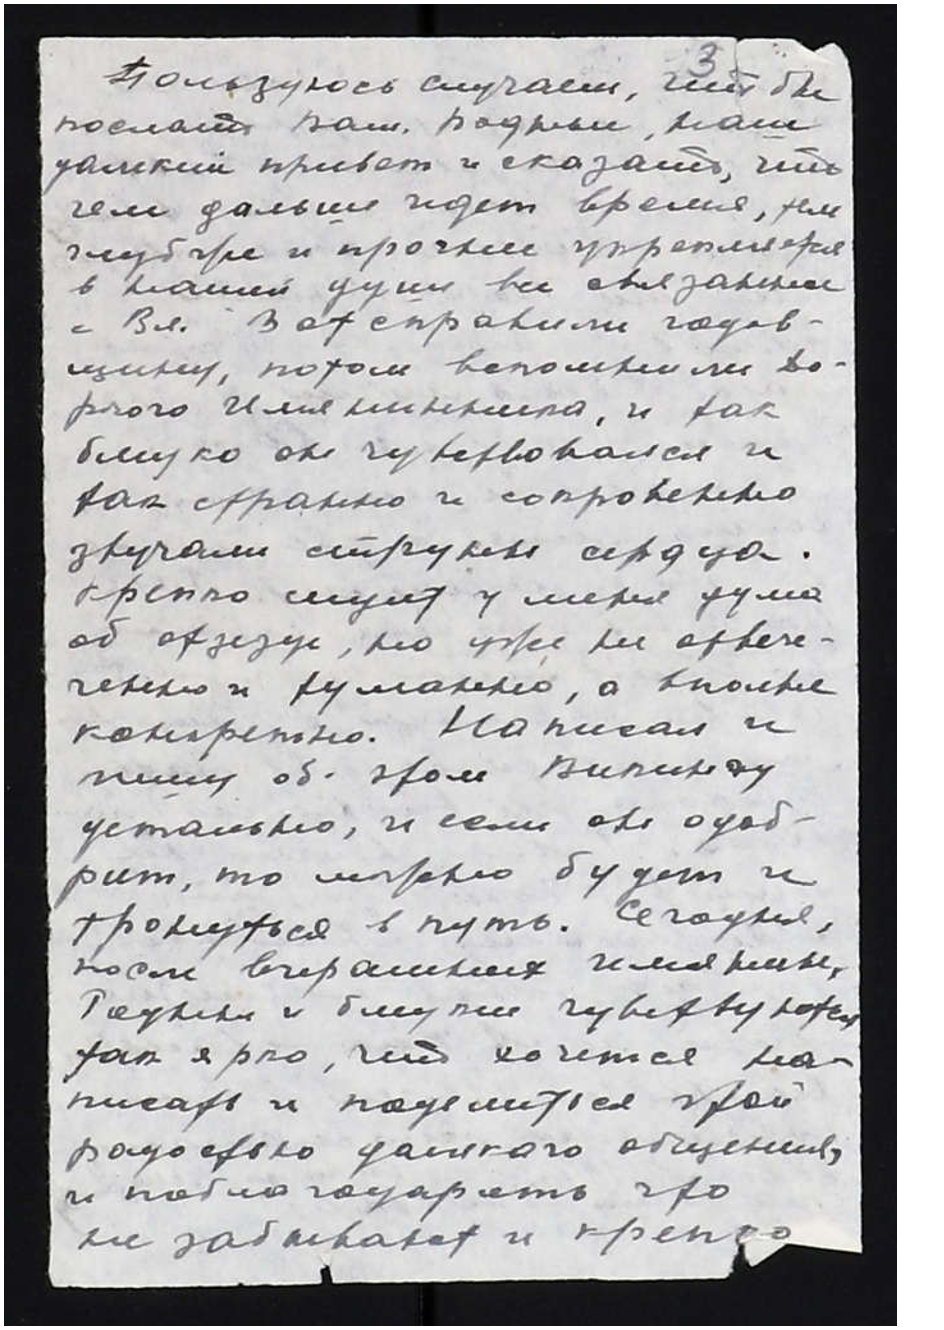 3
Пользуюсь случаем, что бы
послать Вам. Родные, наш
далекий привет и сказать, что
чем дальше идет время, тем
глубже и прочнее укрепляется
в нашей душе все связанное
с Вл. Вот справили годов-
щину, потом вспомнили До-
рогого Именинника, и так
близко он чувствовался и
так странно и сокровенно
звучали струны сердца.
Крепко сидит у меня дума
об отъезде, но уже не отвле-
ченно и туманно, а вполне
конкретно. Написал и
пишу об этом
детально, и если он одоб-
рит, то можно будет и
тронуться в путь. Сегодня,
после вчерашних именин,
Родные и близкие чувствуются
так ярко, что хочется на-
писать и поделиться этой
радостью далекого общения,
и поблагодарить что
не забывает и крепко